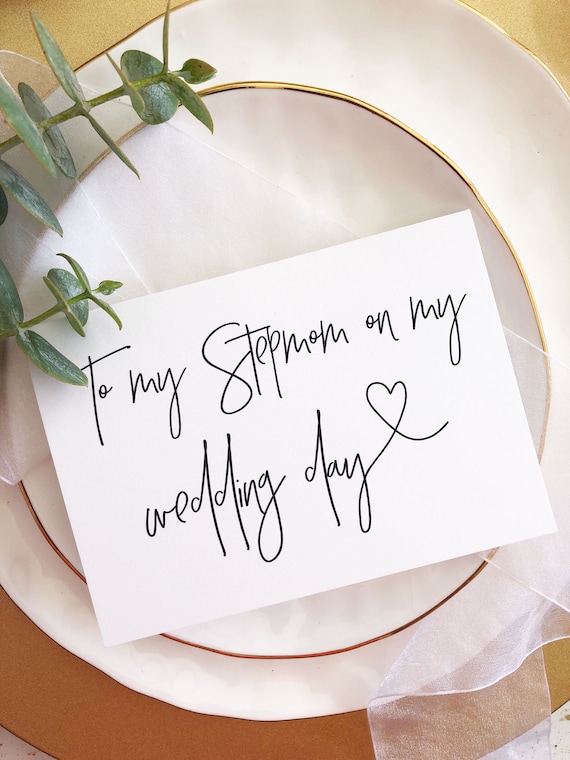 To my Stepmom on my
wedding day